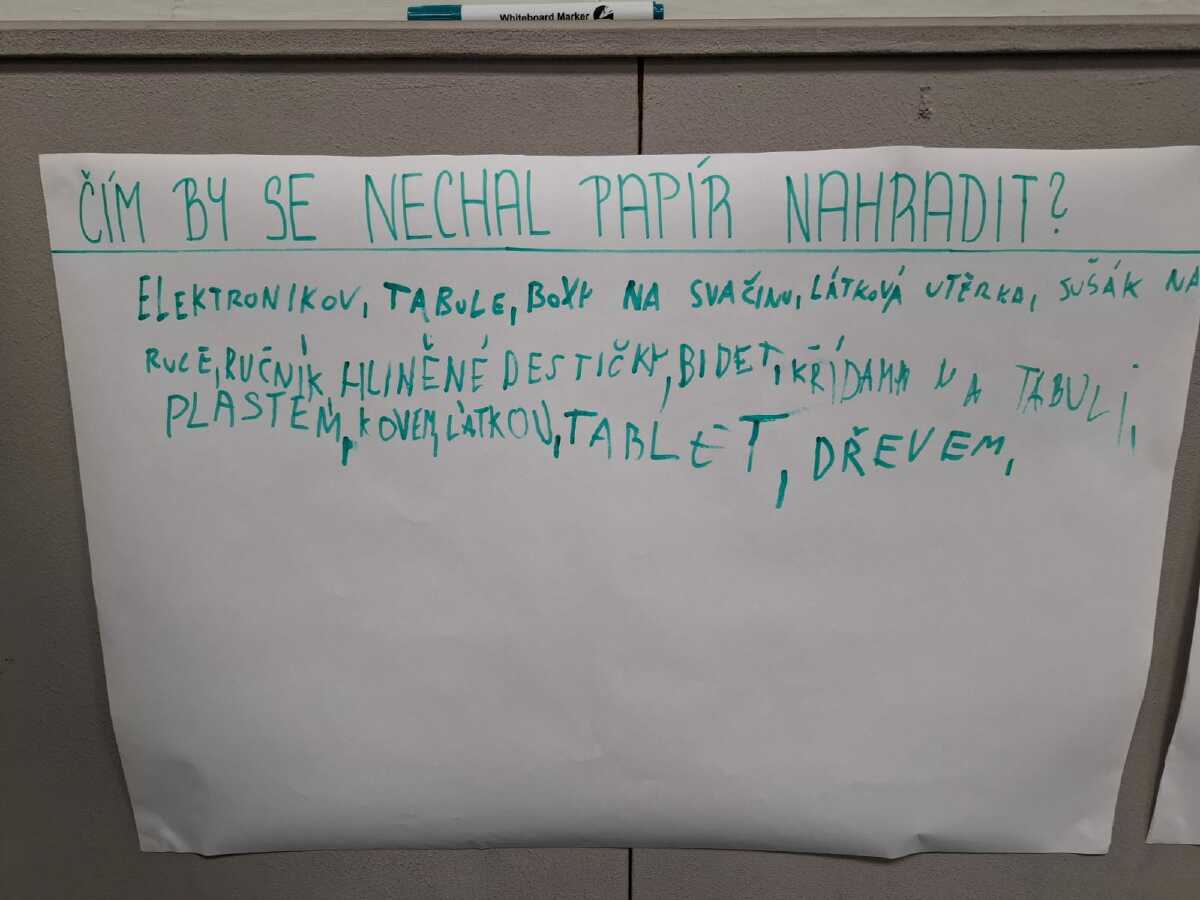 Whiteboard Marker
ČÍM BY SE NECHAL PAPÍR NAHRADIT?
ELEKTRONIKOV, TABULE, BOXY NA SVAČINU, LÁTKOVÁ UTĚRKA, SUŠÁK NA
RUCE, RUČNÍK, HLINĚNÉ DESTIČKY, BIDET, KŘÍDAMA NA TABULI,
PLASTEM, KOVEM, LÁTKOU, TABLET, DŘEVEM,